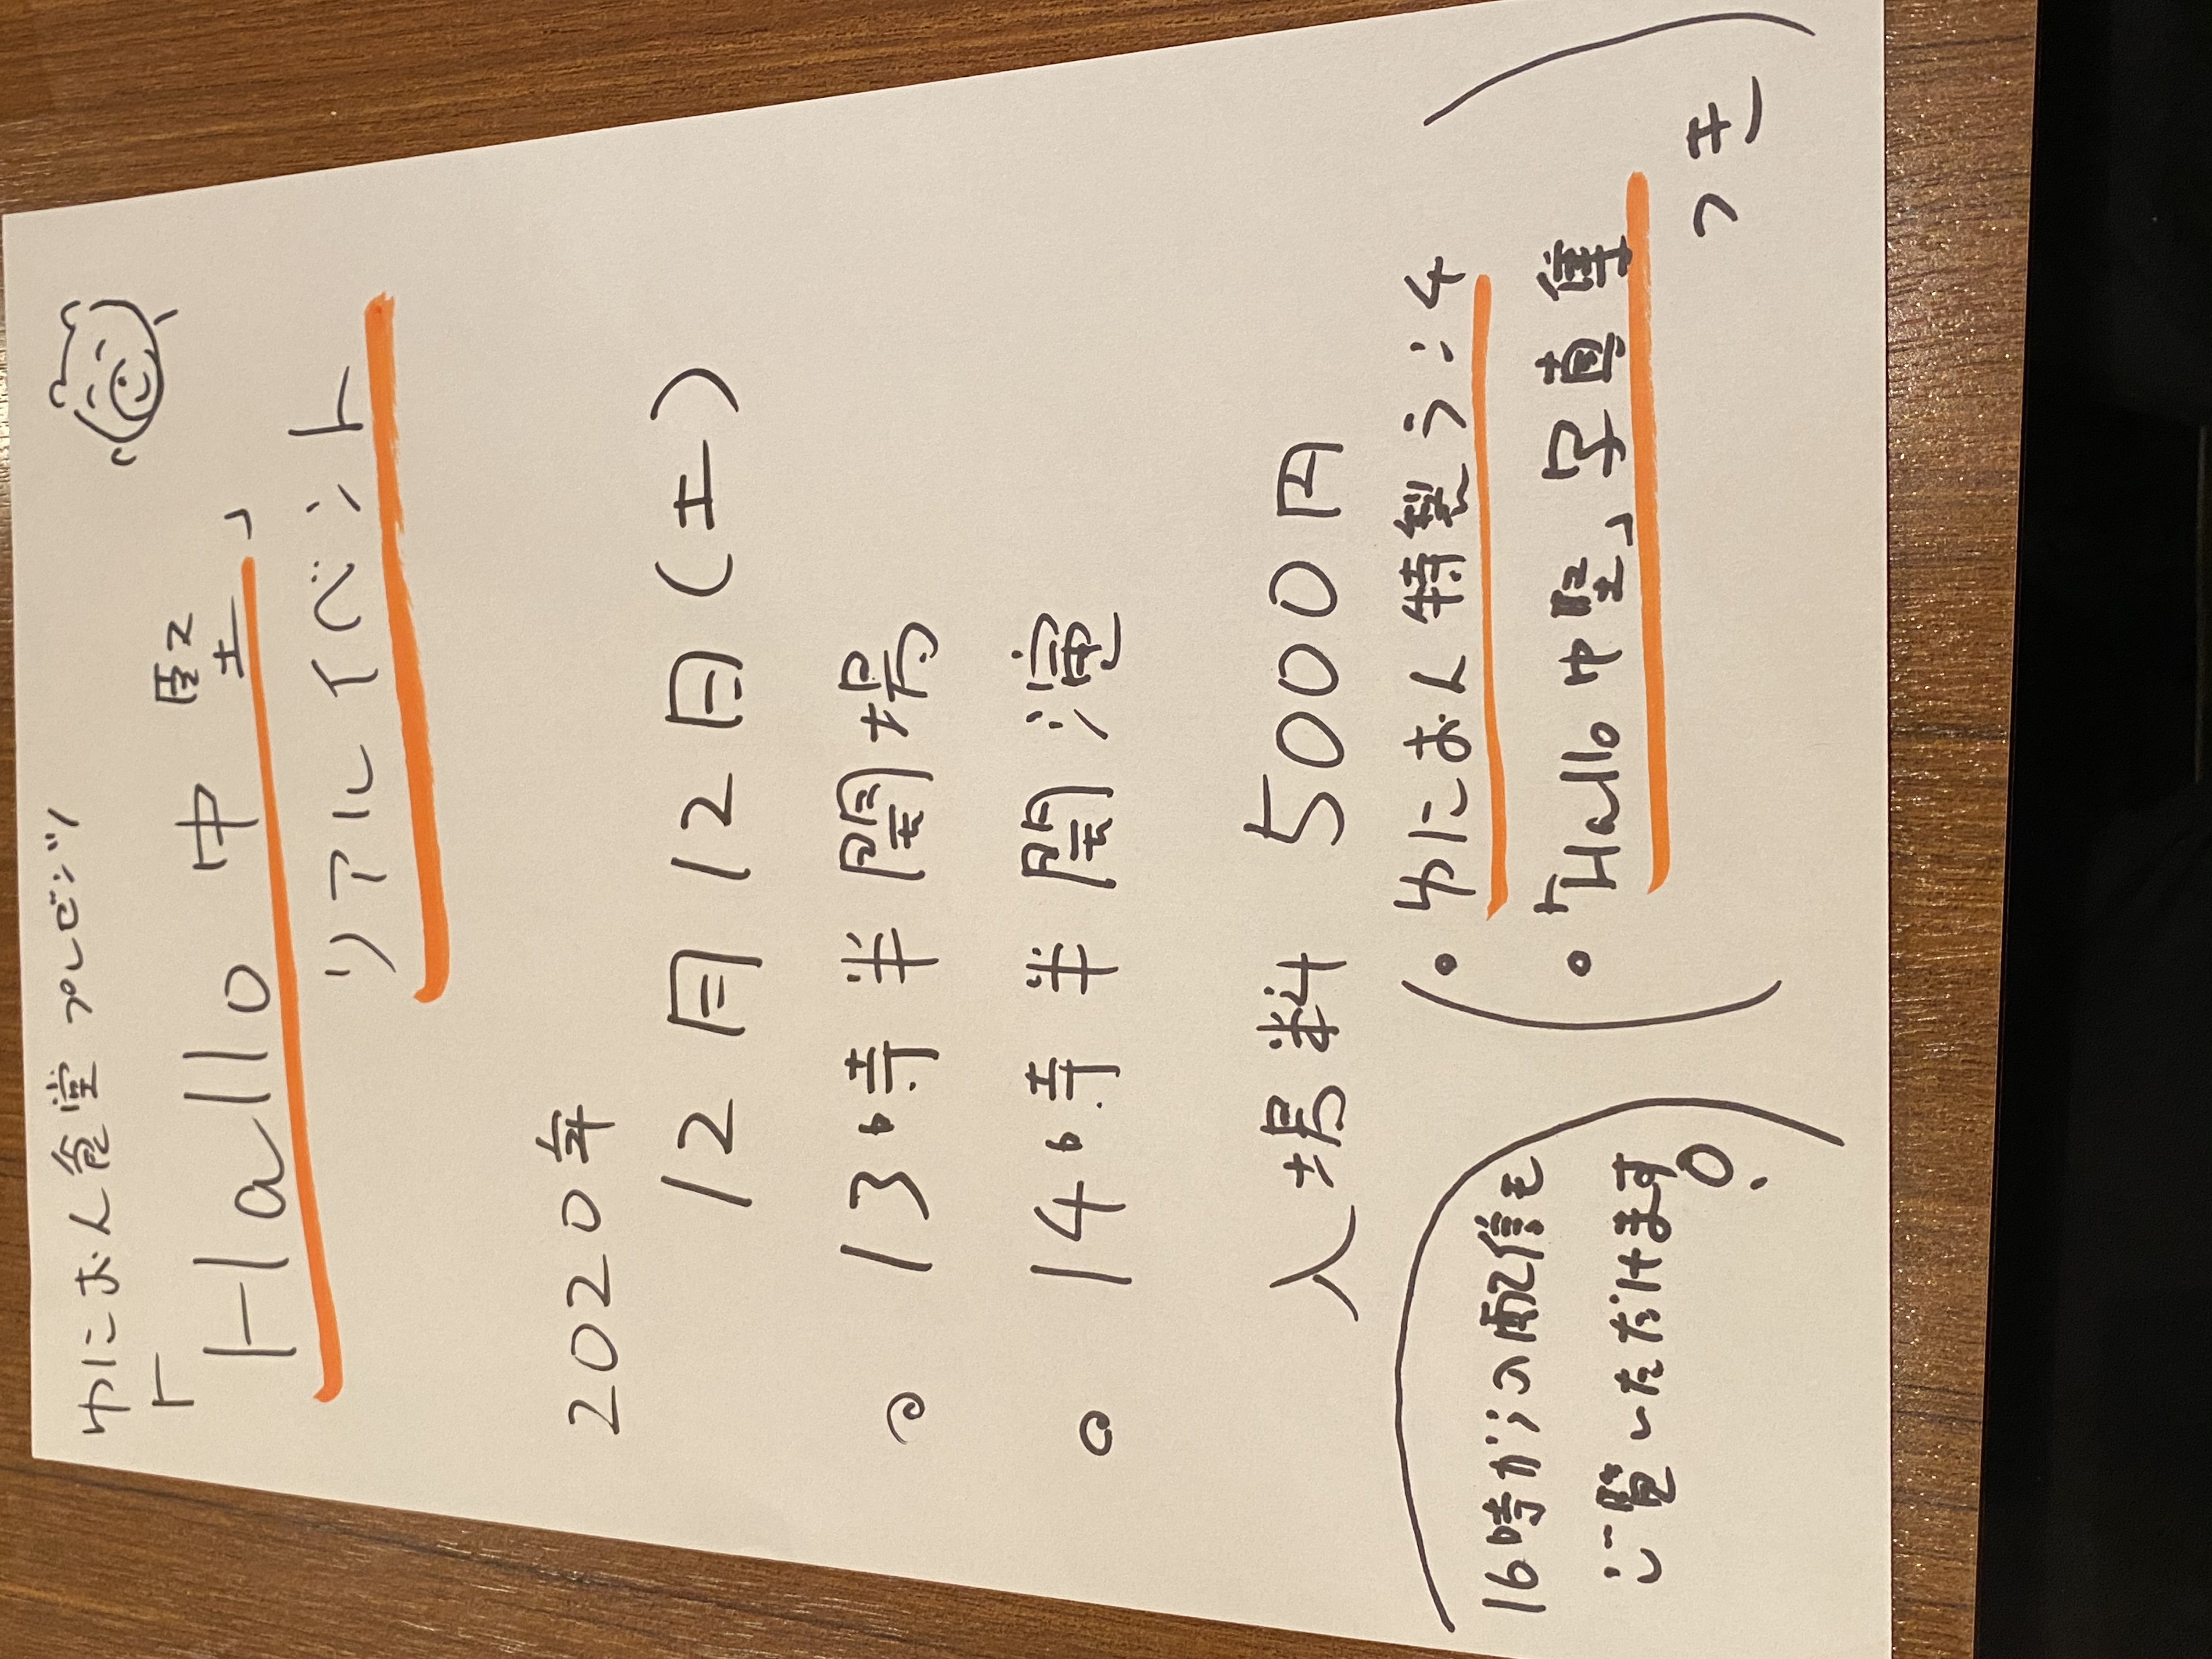 ゆにおん食堂プレゼンツ
「Hallo 中野」
リアルイベント
2020年
12月12日(土)
○ 13時半 開場
○ 14時半 開演
入場料 5000円
・ゆにおん特製ランチ
・「Hallo 中野」写真集
つき
16時からの配信も
ご覧いただけます。